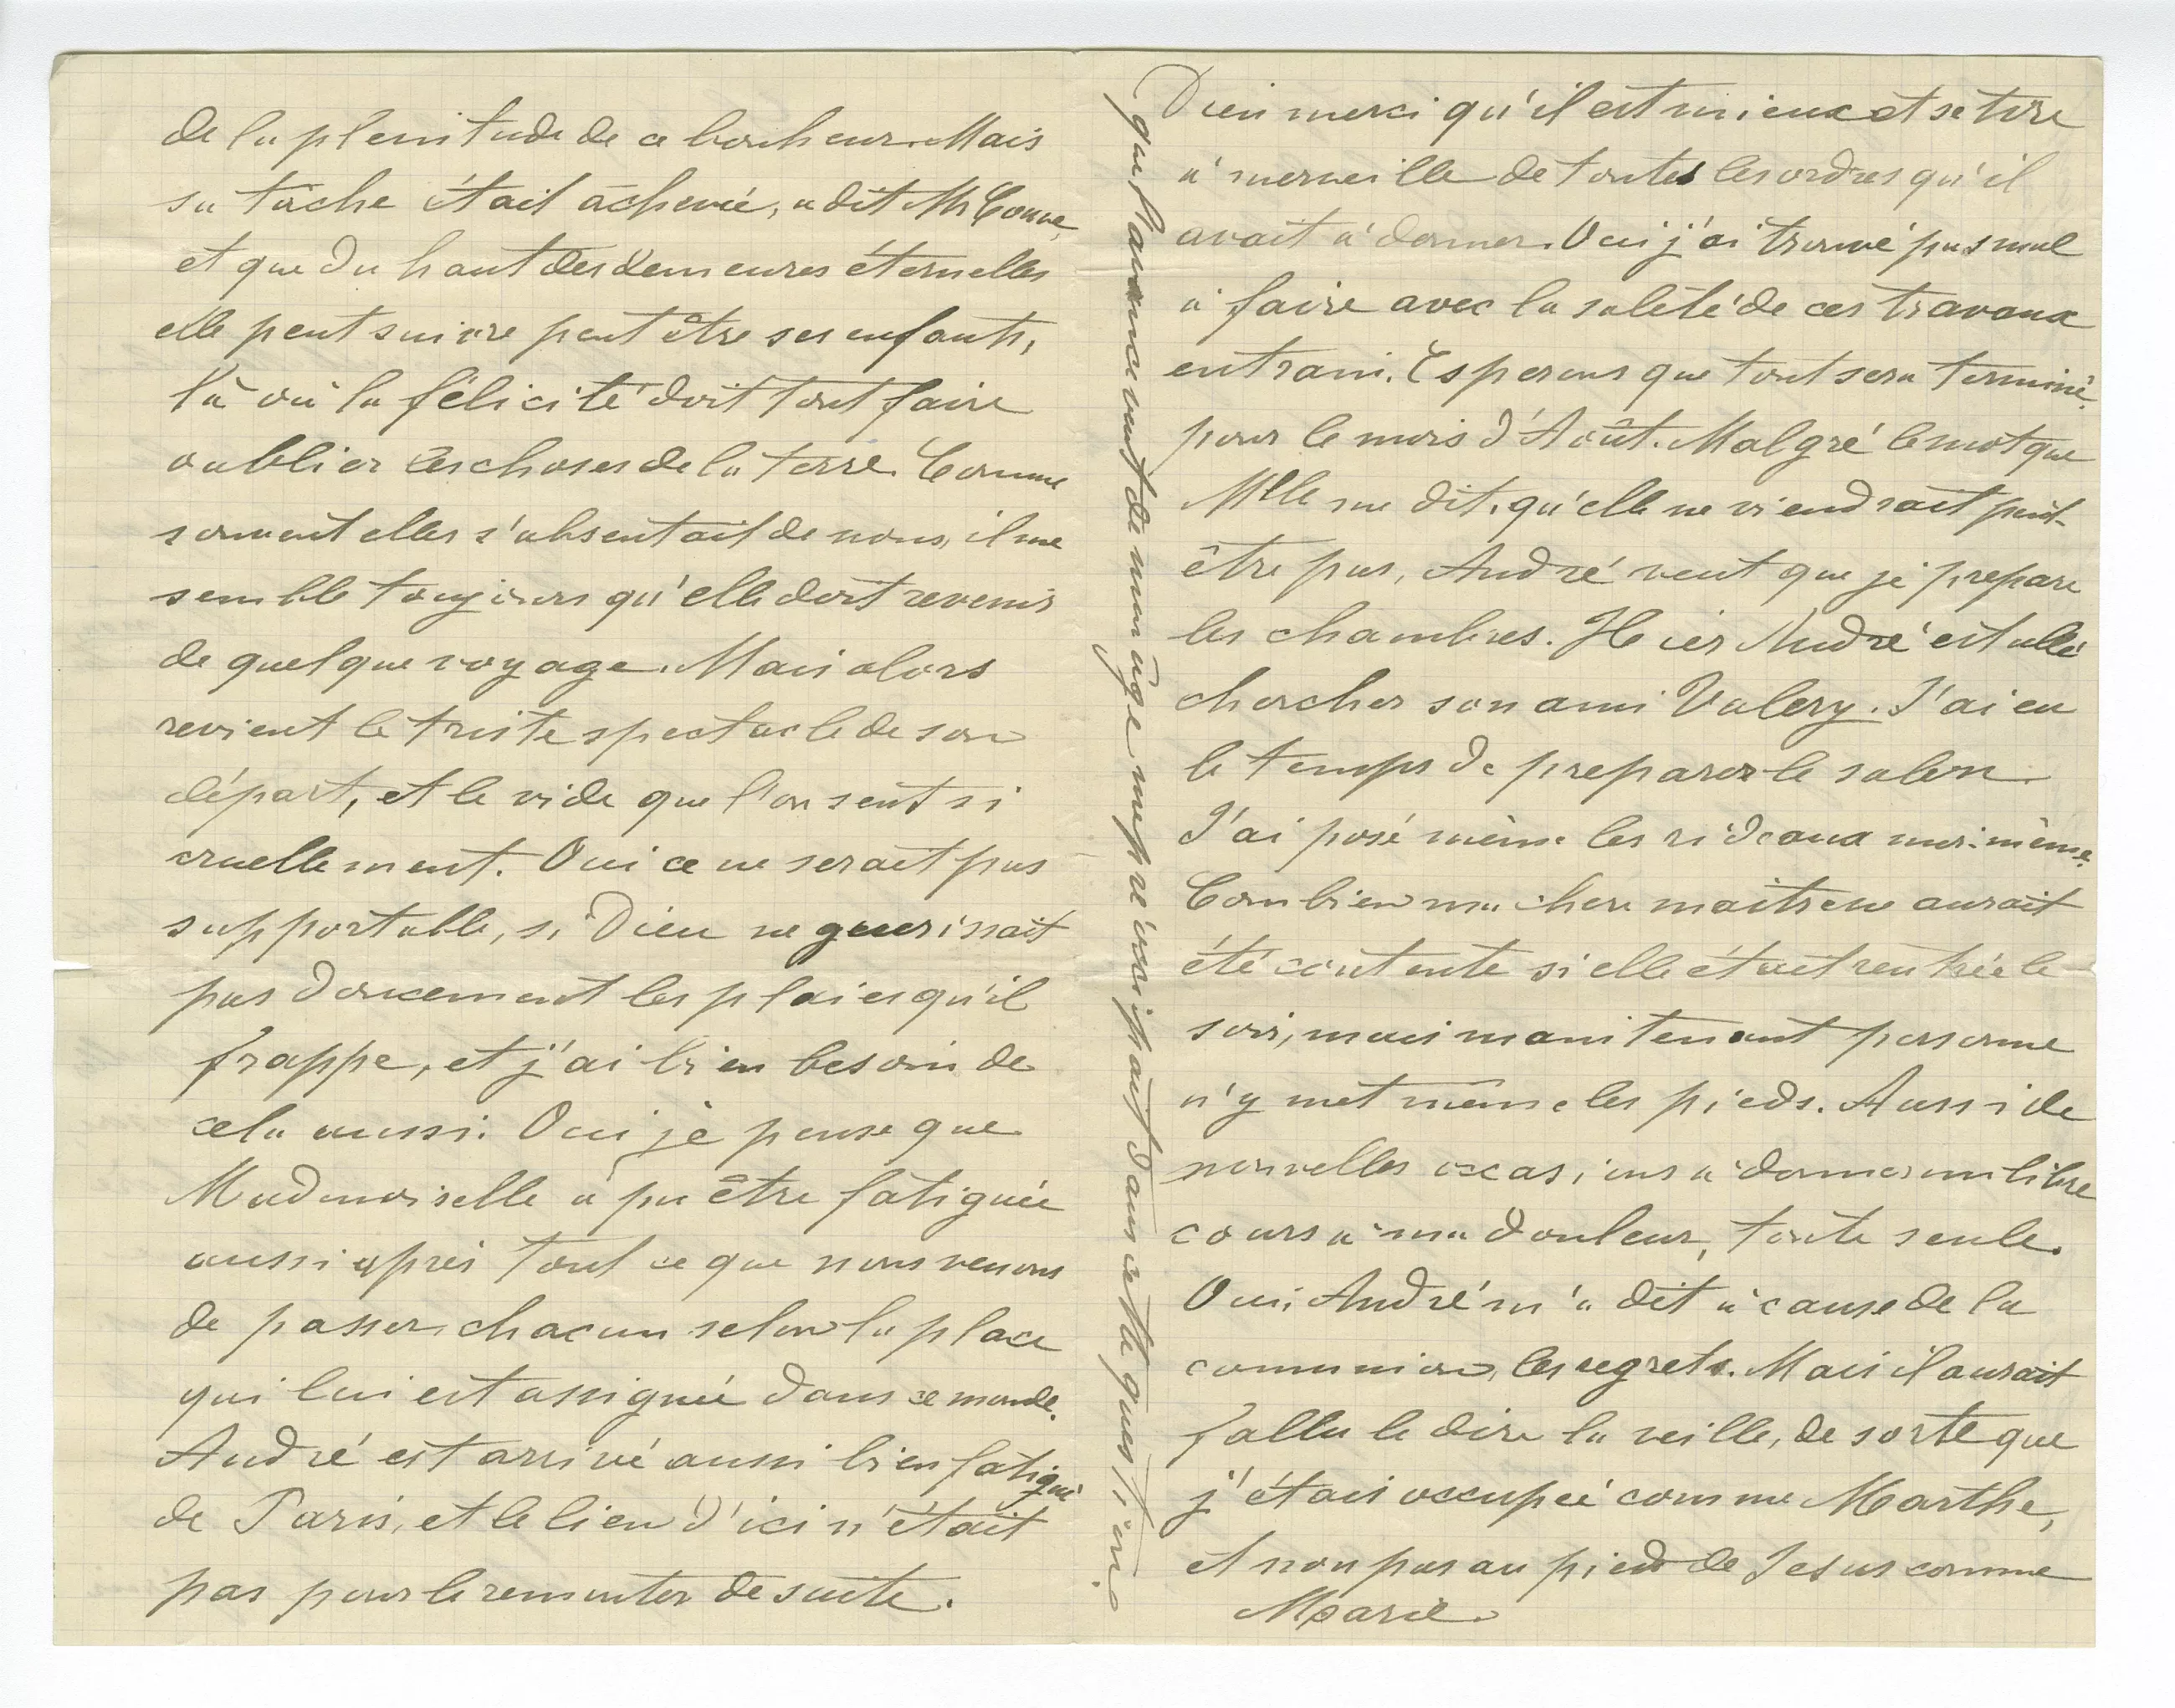 de la plenitude de ce bonheur. Mais
sa tâche était achevée, a dit Mr
et que du haut des demeures éternelles
elle peut suivre peut être ses enfants,
là où la félicité doit tout faire
oublier les choses de la terre. Comme
souvent elles s'absentait de nous, il me
semble toujours qu'elle doit revenir
de quelque voyage. Mais alors
revient le triste spectacle de son
départ, et le vide que l'on sent si
cruellement. Oui ce ne serait pas
supportable, si Dieu ne guerissait
pas doucement les plaies qu'il
frappe, et j'ai bien besoin de
cela aussi. Oui je pense que
Mademoiselle a pu être fatiguée
aussi après tout ce que nous venons
de passer, chacun selon la place
qui lui est assignée dans ce monde.
André est arrivé aussi bien fatigué
de Paris, et le lieu d'ici n'était
pas pour le remonter de suite.
Dieu merci qu'il est mieux et se tire
a' merveille de toutes les ordres qu'il
avait a' donner. Oui j'ai trouvé pas mal
a' faire avec la saleté de ces travaux
en train. Esperons que tout sera terminé
pour le mois d'Août. Malgré le mot que
Mlle me dit, qu'elle ne viendrait peut-
être pas, André veut que je prepare
les chambres. Hier André est allé
chercher son ami Valery. J'ai eu
le temps de preparer le salon.
J'ai posé même les rideaux moi-même.
Combien ma chere maitresse aurait
été contente si elle était rentrée le
soir, mais maintenant personne
n'y met même les pieds. Aussi de
nouvelles occasions a' donner un libre
cours a' ma douleur, toute seule.
Oui, André m'a dit a' cause de la
communion, les regrets. Mais il aurait
fallu le dire la veille, de sorte que
j'étais occupée comme Marthe,
et non pas au pied de Jesus comme
Marie.
que l'avancement de mon âge me préoccipait dans cette question.